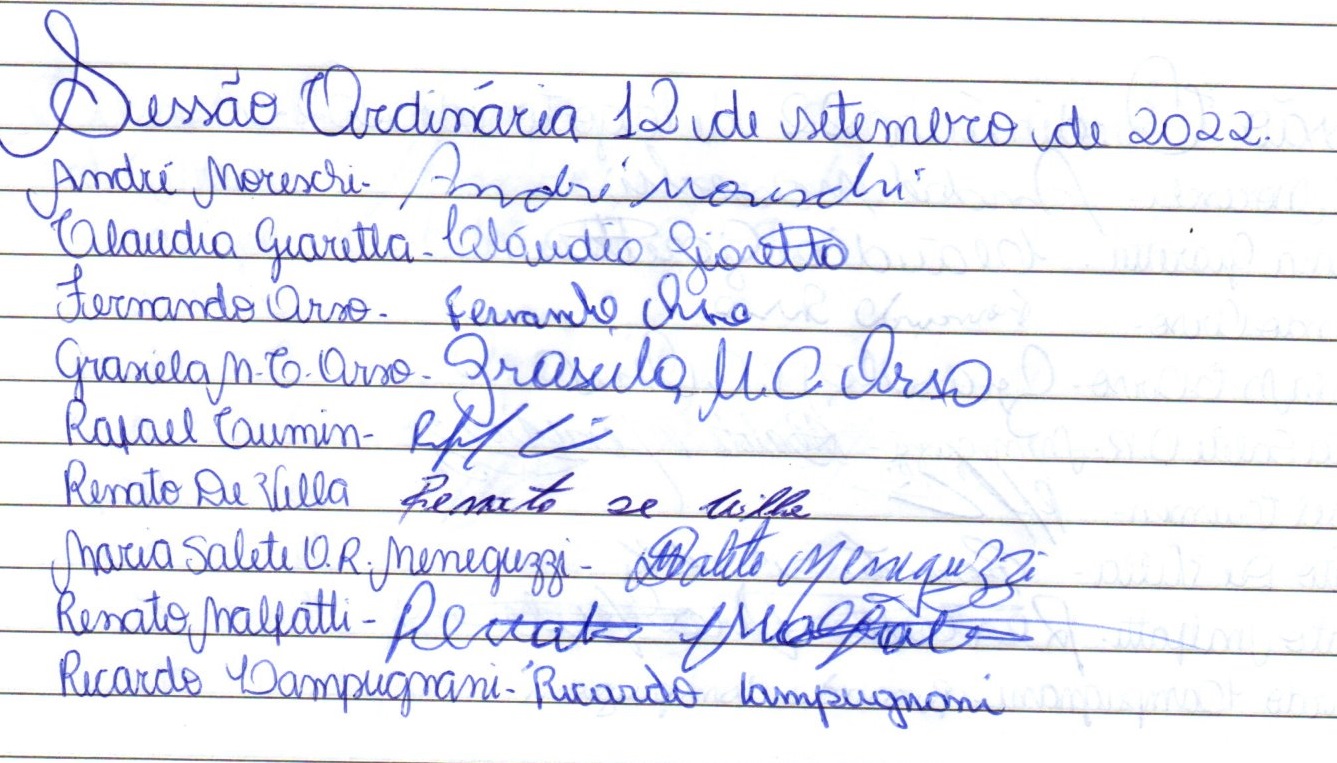 Sessão Ordinária 12 de setembro de 2022.
André Moreschi - André Moreschi
Claudia Giaretta - Cláudia Giaretta
Fernando Orso - Fernando Orso
Grasiela M. C. Orso - Grasiela M. C. Orso
Rafael Cumin -
Renato De Villa Renato de villa
Maria Salete O. R. Meneguzzi - Salete Meneguzzi
Renato Malfatti - Renato Malfatti
Ricardo Lampugnani - Ricardo Lampugnani